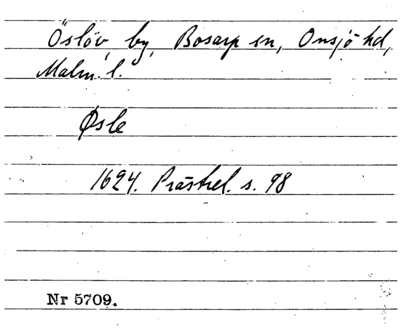 Öslöv, by, Bosarp sn, Onsjö hd,
Malm. l.
Øsle
1624. Prästrel. s. 98
Nr 5709.